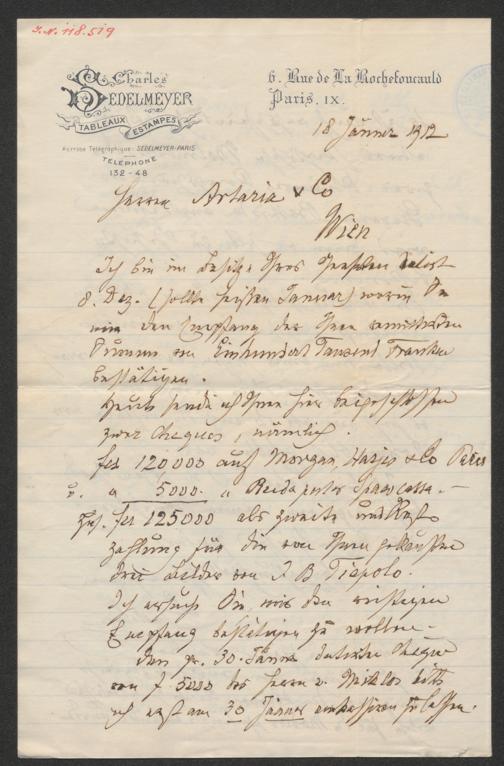 J. N. 118.519
Charles
SEDELMEYER
TABLEAUX
ESTAMPES
Adresse Télégraphique: SEDELMEYER-PARIS
TÉLÉPHONE
132-48
6. Rue de La Rochefoucauld
Paris. IX.
18 Jänner 1912
Herren Artaria & Co
Wien
Ich bin im Besitze Ihres
8. Dez. (sollte heißen Januar) worin Sie
mir den Empfang der Ihnen remittirten
Summe von Einhundert Tausend Franken
bestätigen.
Heute sende ich Ihnen hier beigeschlossen
zwei Cheques, nämlich.
fcs 120,000 auf Morgan, Harjes & Co Paris
u. " 5000. "
Zus. fcs 125000 als zweite und Rest-
zahlung für die von Ihnen gekauften
drei Bilder von J B Tiepolo.
Ich ersuche Sie, mir den richtigen
Empfang bestätigen zu wollen.
Den pr. 30. Jänner datirten Cheque
von f 5000 des Herrn v. Miklos bitte
ich erst am 30 Jänner einkassiren zu lassen.